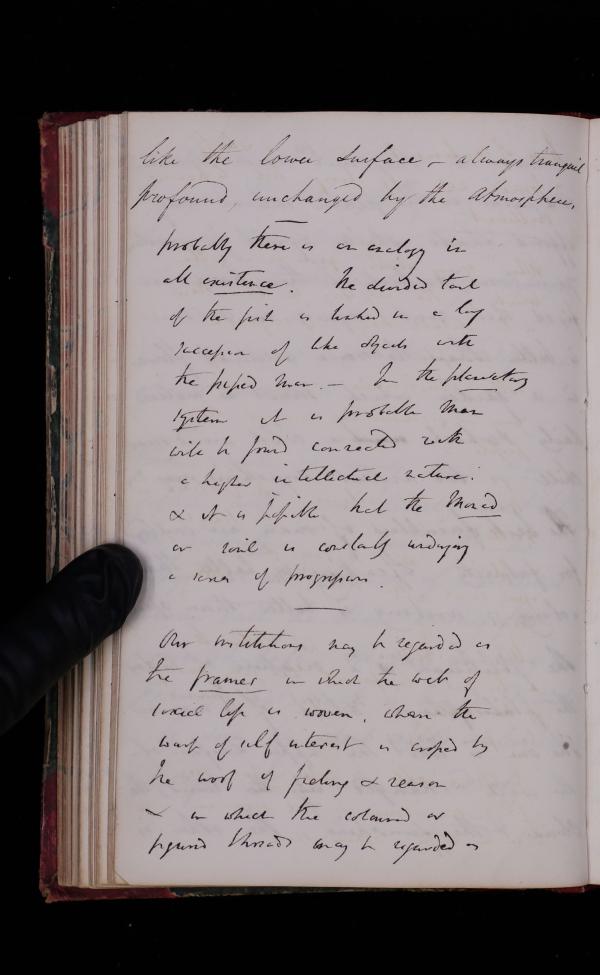 like the lower surface, – always tranquil
profound, unchanged by the atmosphere,
probably there is an analogy in
all existence. The divided tail
of the fish is linked in a long
succession of like objects with
the biped man. – In the planetary
system it is probable man
will be found connected with
a higher intellectual nature:
& it is possible that the Monad
or soul is constantly undergoing
a series of progressions.
Our institutions may be regarded as
the frames in which the web of
social life is woven, where the
warp of self interest is crossed by
the woof of feeling & reason
& in which the coloured or
figured threads may be regarded as